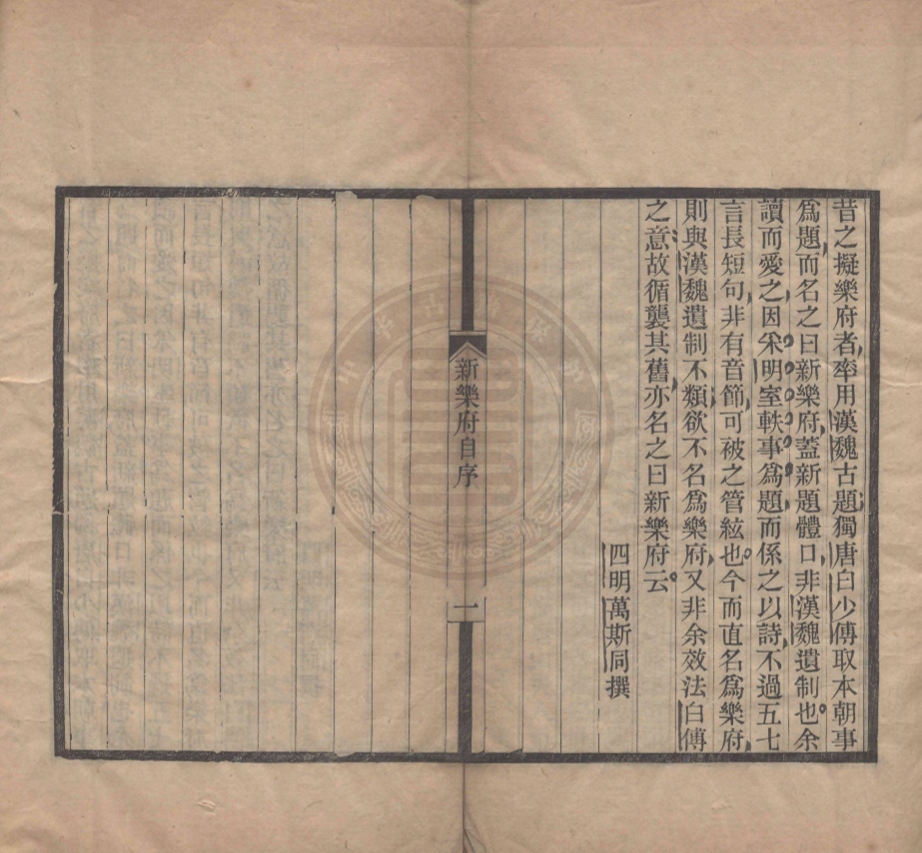 昔之擬樂府者率用漢魏古題獨唐白少傅取本朝事
爲題而名之曰新樂府蓋新題體口非漢魏遺制也余
讀而愛之因采明室軼事爲題而係之以詩不過五七
言長短句非有音節可被之管絃也今而直名爲樂府
則與漢魏遺制不類欲不名爲樂府又非余效法白傅
之意故循襲其舊亦名之曰新樂府云
四明萬斯同撰
新樂府自序
一